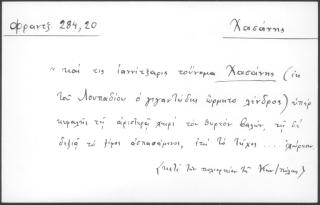 Φραντζ. 284,20
Χασάνης
"καί τις ἰαννίτζαρις τοὔνομα Χασάνης (ἐκ
τοῦ Λουπαδίου ὁ γιγαντώδης ὥρμητο λίνδρος) ὑπὲρ
κεφαλῆς τῇ ἀριστερᾷ χειρὶ τὸν θυρεὸν βαλών, τῇ δὲ
δεξιᾷ τὸ ξίφος σπασάμενος, ἐπὶ τὸ τεῖχος ... ἐχώρησεν.